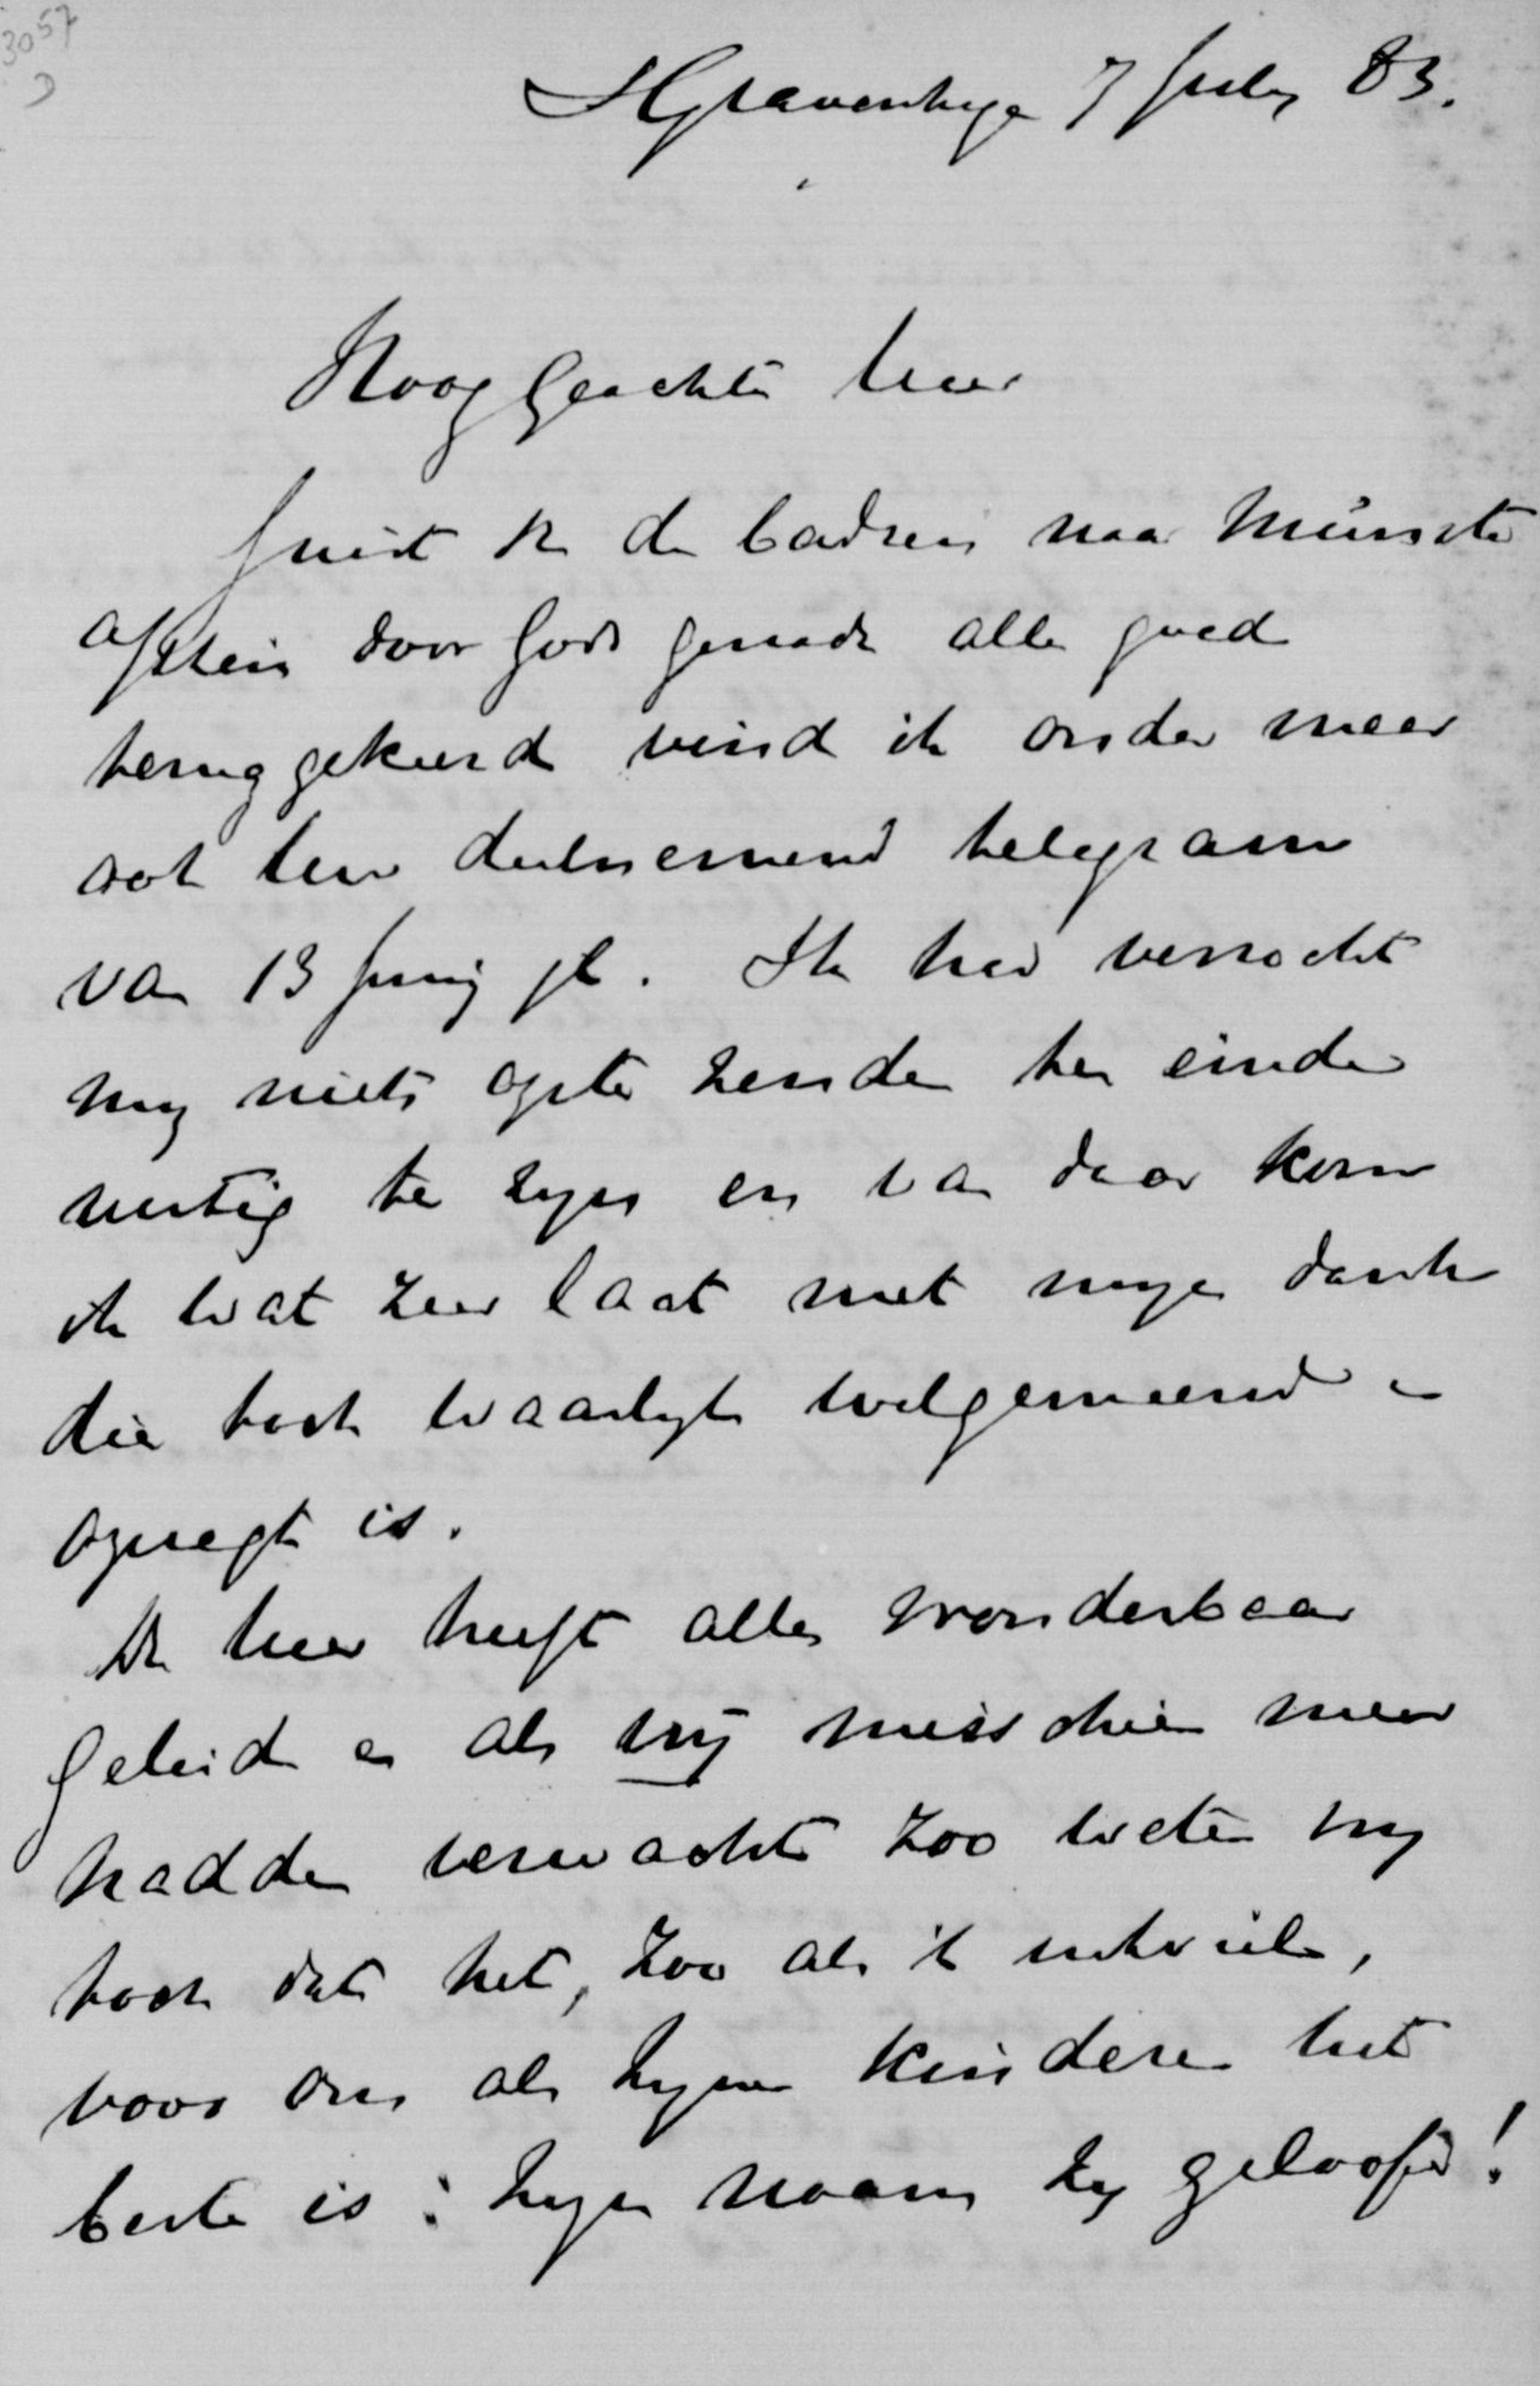 3057
SGravenhage 7 July 83.
Hoog Geachte heer
Juist v. de badreis naar Münster
a/Stein door Gods genade allen goed
teruggekeerd vind ik onder meer
ook Uw deelnemend telegram
van 13 Junij jl. Ik had verzocht
my niets opte zenden ten einde
rustig te zyn en van daar kom
ik wat zeer laat met myn dank
die toch waarlyk welgemeend en
opregt is.
De heer heeft alles wonderbaar
geleid en als wij misschien meer
hadden verwacht zoo weten wy
toch dat het, zoo als 't uitviel,
voor ons als Zyne kinderen het
beste is: Zyn naam zy geloofd!